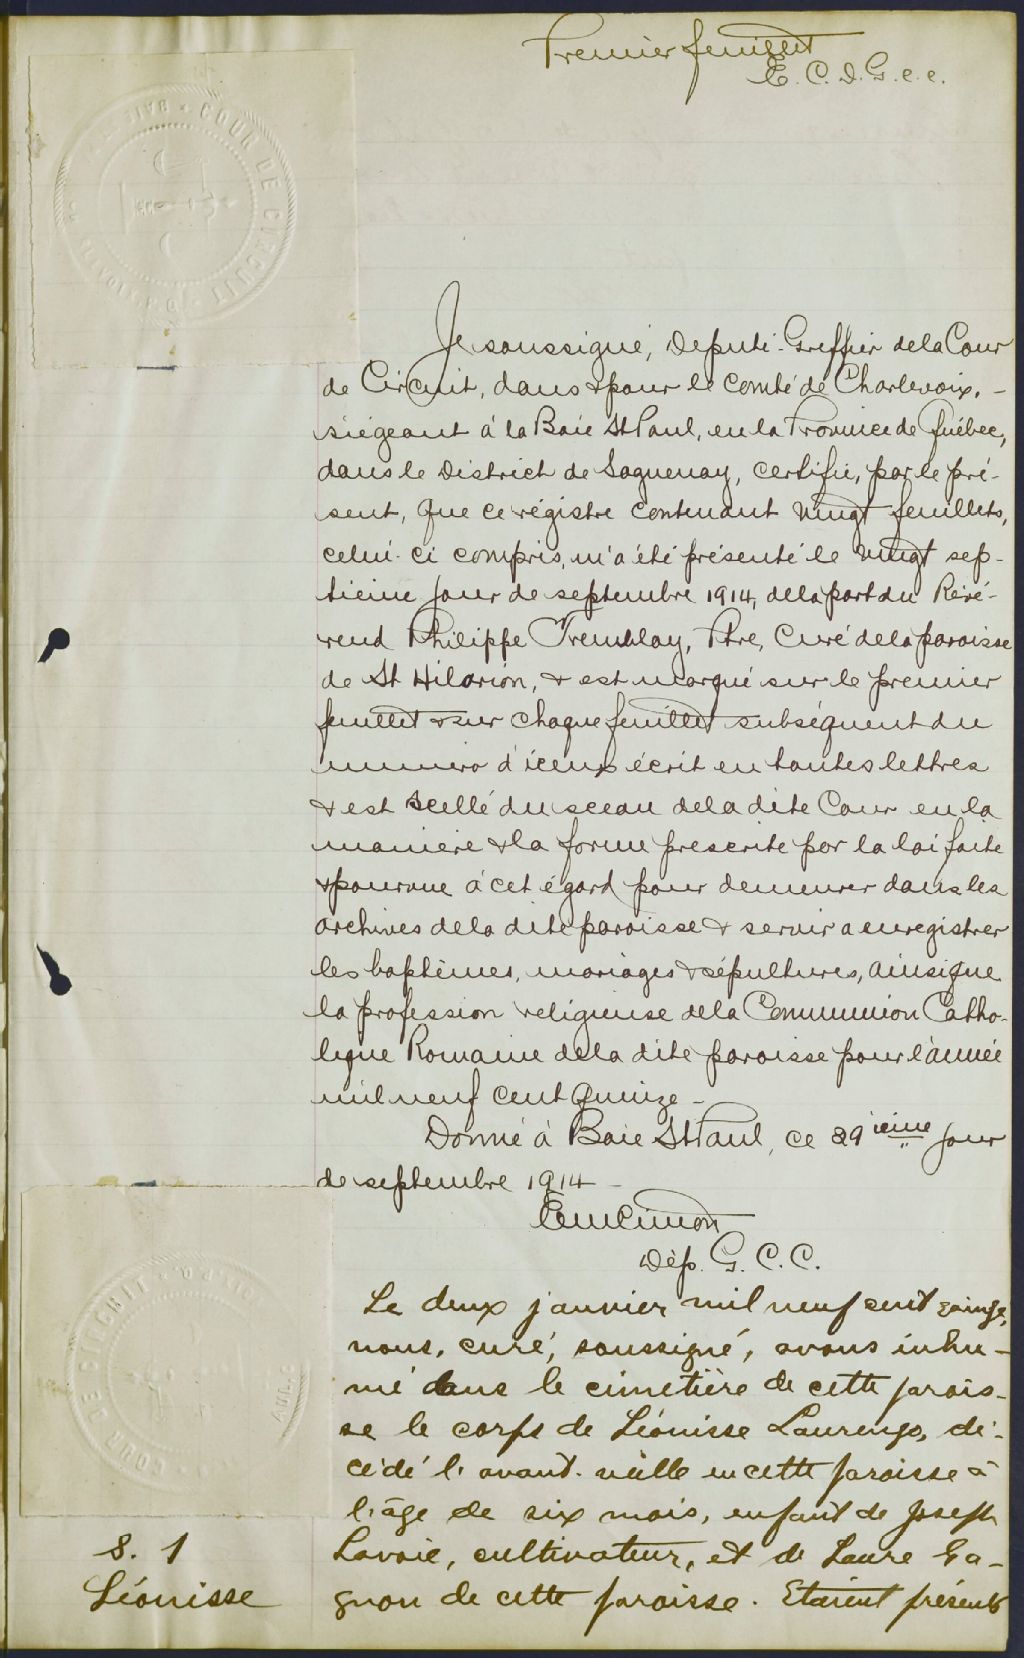 Premier feuillet
E. C. D. G. c. c.
COUR DE CIRCUIT
Je soussigné, Député-Greffier de la Cour
de Circuit, dans & pour le comté de Charlevoix, -
siégeant à la Baie St Paul, en la Province de Québec,
dans le District de Saguenay, certifie, par le pré-
sent, que ce régistre contenant vingt feuillets,
celui-ci compris, m'a été présenté le vingt sep-
tième jour de septembre 1914, de la part du Révé-
rend Philippe Tremblay, Ptre, Curé de la paroisse
de St Hilarion, & est marqué sur le premier
feuillet & sur chaque feuillet subséquent du
numéro d'iceux écrit en toutes lettres
& est scellé du sceau de la dite Cour en la
manière & la forme prescrite par la loi faite
& pourvue à cet égard pour demeurer dans les
archives de la dite paroisse & servir a enregistrer
les baptêmes, mariages & sépultures, ainsi que
la profession religieuse de la Communion Catho-
lique Romaine de la dite paroisse pour l'année
mil neuf cent quinze -
Donné à Baie St Paul, ce 29ième jour
de septembre 1914 -
Cimon
Dép. G. C. C.
Le deux janvier mil neuf cent quinze,
nous, curé, soussigné, avons inhu-
mé dans le cimetière de cette parois-
se le corps de Léonisse, dé-
cédé l'avant-veille en cette paroisse à
l'âge de six mois, enfant de Joseph
Lavoie, cultivateur, et de Laure Ga-
gnon de cette paroisse. Etaient présents
COUR DE CIRCUIT
S. 1
Léonisse